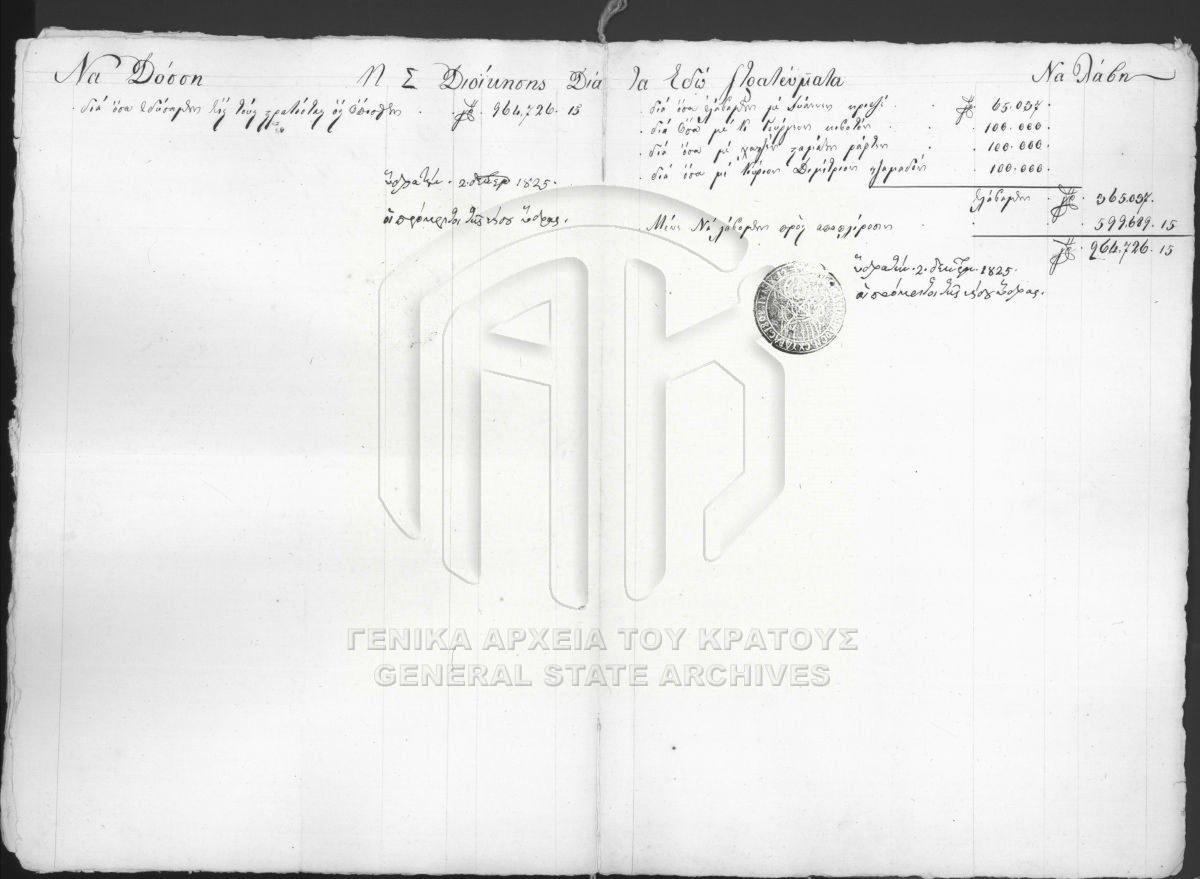 Να Δόση Η Σ Διοίκησης Διά τα Εδώ στρατεύματα Να λάβη
διά όσα εδόσαμεν εις τους στρατιότας ως όπισθεν 964.726.15
ύδρα τη 2 δεκεμβρ 1825.
οι πρόκριτοι της νήσου ύδρας.
διά όσα ελάβαμεν με Ιωάννην 65.037.
διά όσα με Κ Γεώργιον 100.000.
διά όσα με 100.000.
διά όσα με Κύριον Δημίτριον 100.000
ελάβαμεν 365.037.
Μένει Να λάβωμεν προς αποπλήροσιν 599.689.15
964.726 15
ύδρα τη 2 δεκεμβρ 1825.
οι πρόκριτοι της νήσου ύδρας.
ΓΕΝΙΚΑ ΑΡΧΕΙΑ ΤΟΥ ΚΡΑΤΟΥΣ
GENERAL STATE ARCHIVES